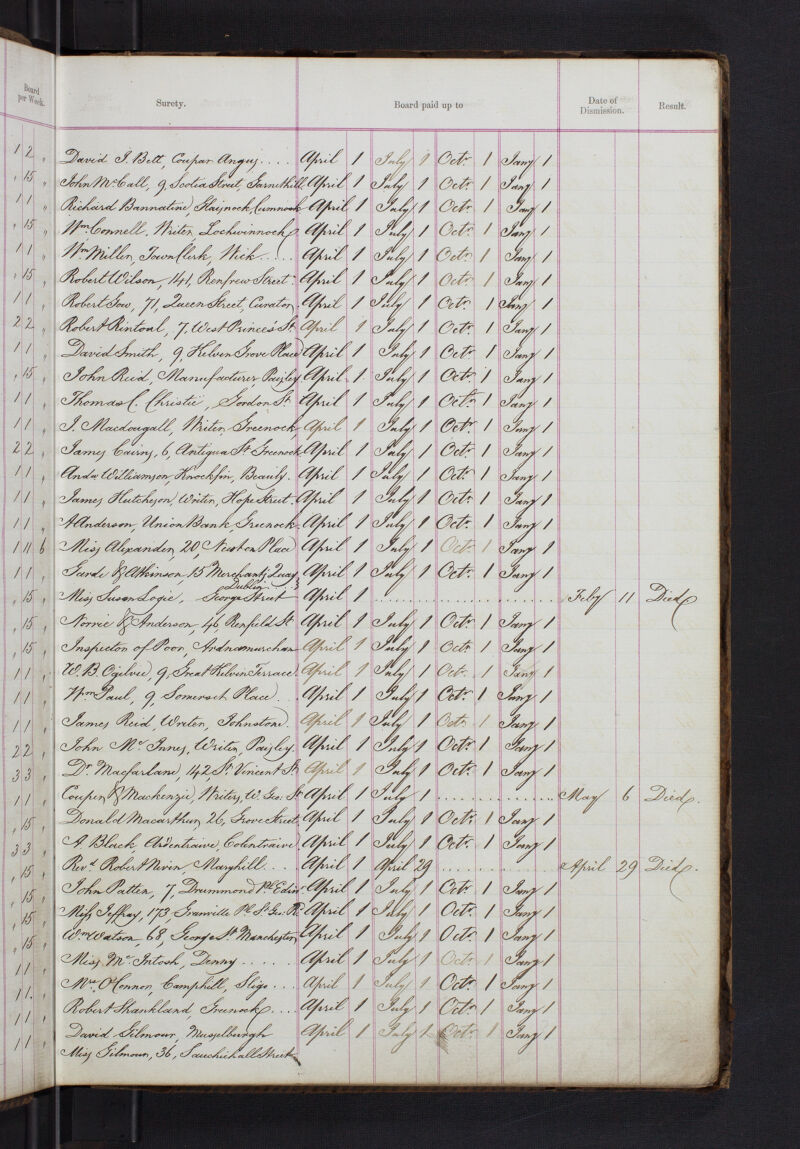 Board per Week. Surety. Board paid up to Date of Dismission. Result.
1 2 " David J. Bett, Coupar Angus .... April 1 July 1 Octr. 1 Jany 1
" 15 " John McCall, 9, Scotia Street, Garnethill April 1 July 1 Octr. 1 Jany 1
1 1 " Richard Bannatine, Cumnock April 1 July 1 Octr. 1 Jany 1
" 15 " Wm. Connell, Writer, Lochwinnoch April 1 July 1 Octr. 1 Jany 1
1 1 " Wm Miller, Town Clerk, Wick ..... April 1 July 1 Octr. 1 Jany 1
" 15 " Robert Wilson, 141, Renfrew Street. April 1 July 1 Octr. 1 Jany 1
1 1 " Robert Gow, 71, Queen Street, Curator. April 1 July 1 Octr. 1 Jany 1
2 2 " Robert Rintoul, 7, West Princes St April 1 July 1 Octr. 1 Jany 1
1 1 " David Smith, 9, Kelvin Grove Place April 1 July 1 Octr. 1 Jany 1
" 15 " John Reid, Manufacturer, Paisley April 1 July 1 Octr. 1 Jany 1
1 1 " Thomas C. Christie, Gordon St. April 1 July 1 Octr. 1 Jany 1
1 1 " J. Macdougall, Writer, Greenock, April 1 July 1 Octr. 1 Jany 1
2 2 " James Cairns, 6, Antigua St Greenock April 1 July 1 Octr. 1 Jany 1
1 1 " Andw Williamson, Knockfin, Beauly. April 1 July 1 Octr. 1 Jany 1
1 1 " James Hutcheson, Writer, Hope Street. April 1 July 1 Octr. 1 Jany 1
1 1 " A Anderson, Union Bank, Greenock. April 1 July 1 Octr. 1 Jany 1
1 11 6 Miss Alexander, 20, Newton Place April 1 July 1 Octr. 1 Jany 1
1 1 " Garde & Atkinson 15 Merchants Quay April 1 July 1 Octr. 1 Jany 1
Dublin
" 15 " Miss Susan Logie, George Street April 1 ........ Feby 11 Died
" 15 " Norrie & Anderson, 46, Renfield St April 1 July 1 Octr. 1 Jany 1
" 15 " Inspector of Poor, Ardnamurchan April 1 July 1 Octr. 1 Jany 1
1 1 " W. B. Ogilvie, 9, Great Kelvin Terrace April 1 July 1 Octr. 1 Jany 1
1 1 " Wm Paul, 9, Somerset Place ... April 1 July 1 Octr. 1 Jany 1
1 1 " James Reid Writer, Johnstone. April 1 July 1 Octr. 1 Jany 1
2 2 " John McInnes, Writer, Paisley April 1 July 1 Octr. 1 Jany 1
3 3 " Dr. Macfarlane, 142 St. Vincent St. April 1 July 1 Octr. 1 Jany 1
1 1 " Couper & Mackenzie, Writers, W. Geo: St April 1 July 1 ........ May 6 Died.
" 15 " Donald Macarthur, 26, Grove Street April 1 July 1 Octr. 1 Jany 1
3 3 " A. Black, Ardentraive, Colintraive April 1 July 1 Octr. 1 Jany 1
" 15 " Revd. Robert Niven Maryhill .... April 1 April 29 ........ April 29 Died.
" 15 " John Patten, 7, Drummond Pl. Edinr April 1 July 1 Octr. 1 Jany 1
" 15 " Miss Jeffray, 173, Granville Pl. St. Geo: Rd. April 1 July 1 Octr. 1 Jany 1
" 15 " Wm Watson, 68, George St. Manchester April 1 July 1 Octr. 1 Jany 1
1 1 " Miss McIntosh, Denny ...... April 1 July 1 Octr. 1 Jany 1
1 1 " Mrs O'Connor, Camphill, Sligo .... April 1 July 1 Octr. 1 Jany 1
1 1 " Robert Shankland, Greenock .... April 1 July 1 Octr. 1 Jany 1
1 1 " David Gilmour, Musselburgh April 1 July 1 Octr. 1 Jany 1
Miss Gilmour, 36, Sauchiehall Street